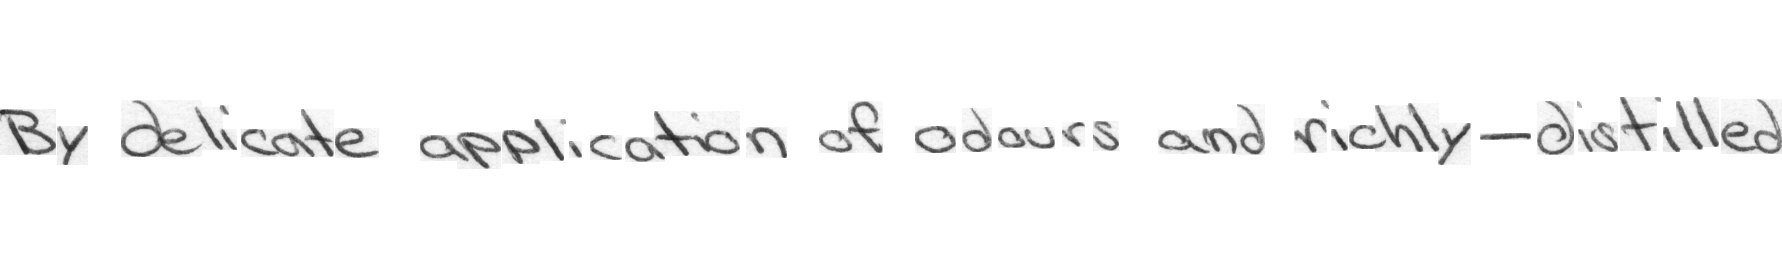 By delicate application of odours and richly-distilled